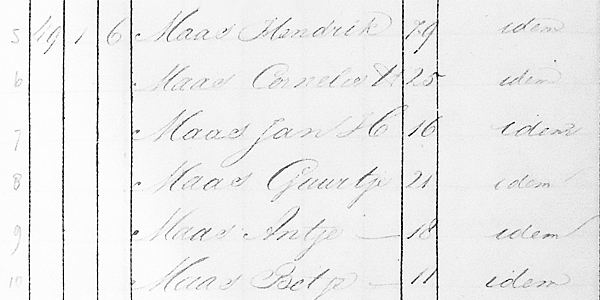 5 49 1 6 Maas Hendrik 79 idem
6 Maas Cornelis 25 idem
7 Maas Jan H 16 idem
8 Maas Guurtje 21 idem
9 Maas Antje — 18 idem
10 Maas Betje — 11 idem